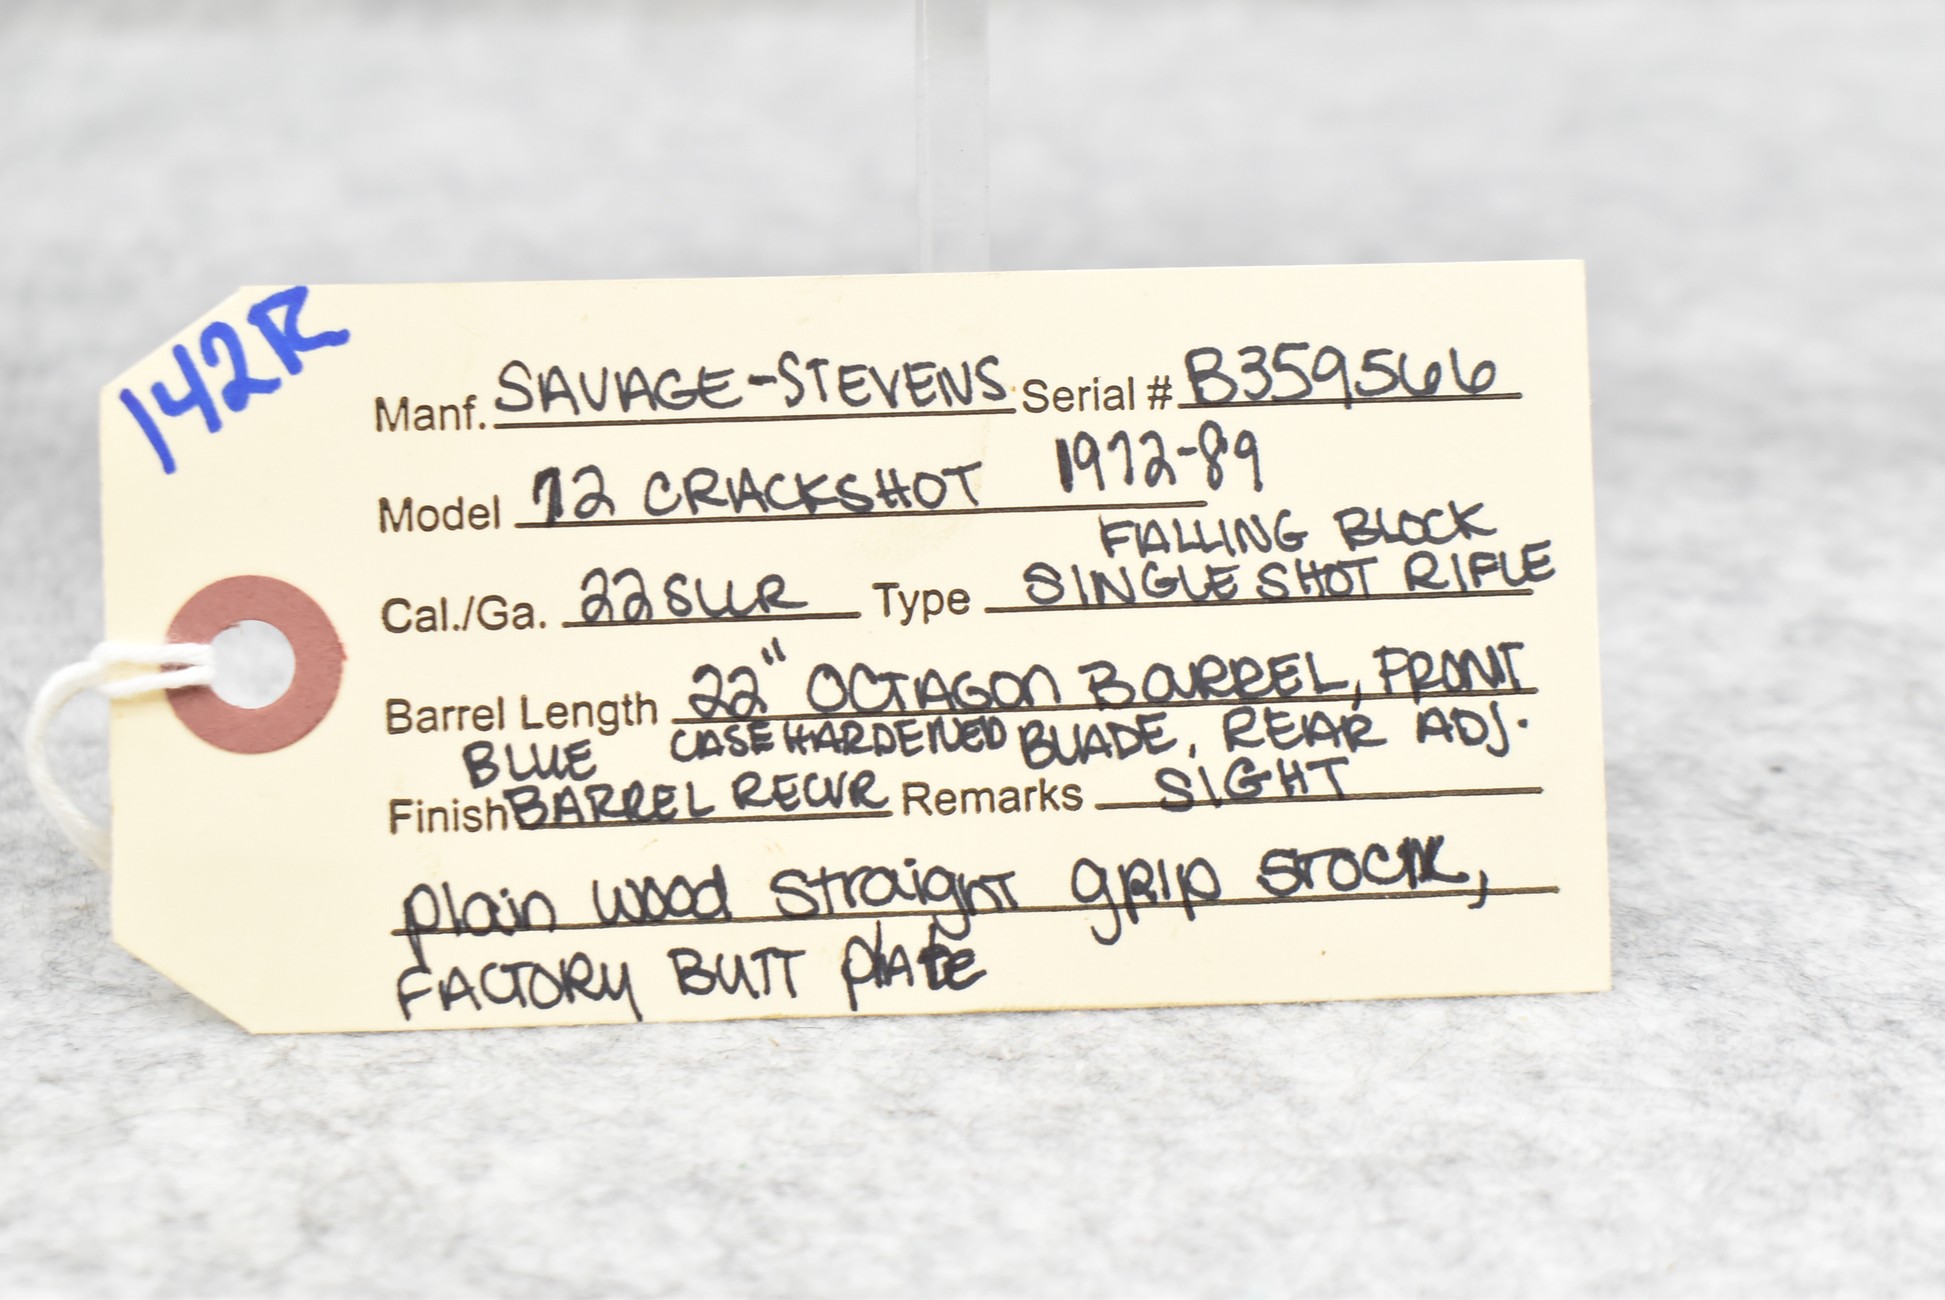 142R
Manf. SAVAGE-STEVENS Serial # B359566
Model 72 CRACKSHOT 1972-89
FALLING BLOCK
Cal./Ga. 22SLLR Type SINGLE SHOT RIFLE
Barrel Length 22" OCTAGON BARREL, FRONT
BLUE CASE HARDENED BLADE, REAR ADJ.
Finish BARREL RECVR Remarks SIGHT
plain wood straight grip stock,
FACTORY BUTT plate